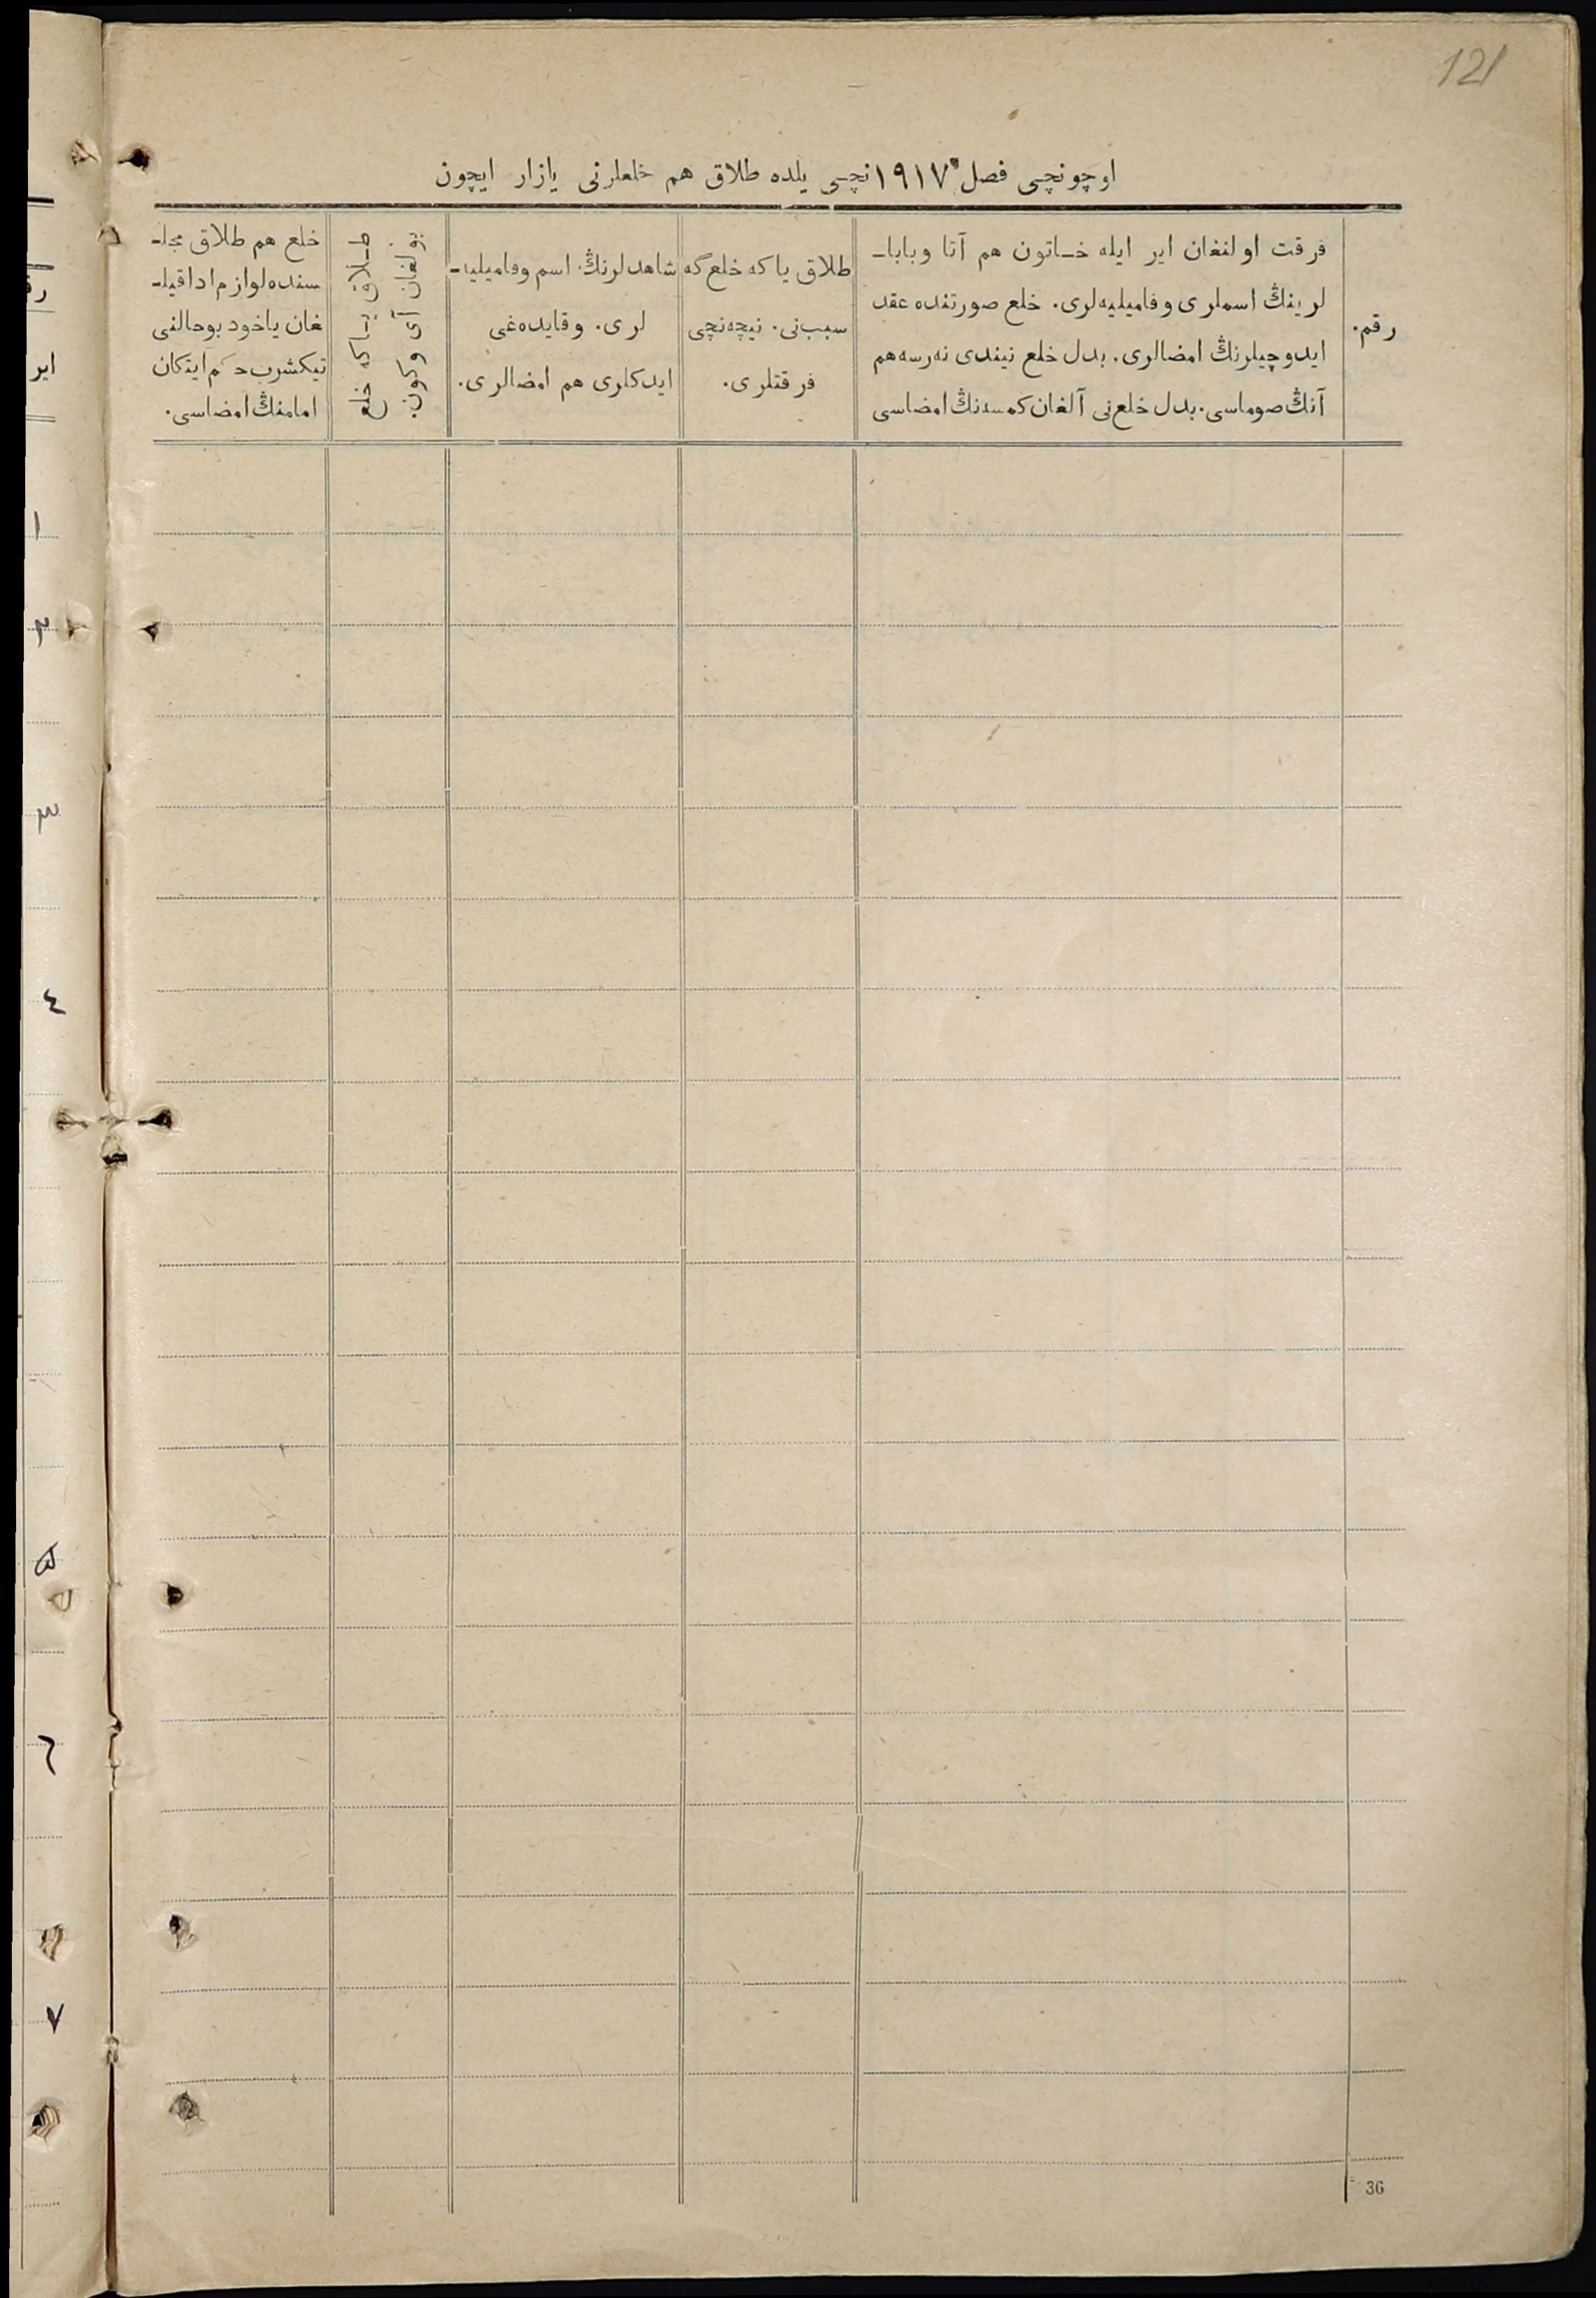 121
اوچونچی فصل ١٩١٧نچی یلده طلاق هم خلعلرنی یازار ایچون
رقم.
فرقت اولنغان ایر ایله خاتون هم آتا وبابا-
لرینڭ اسملری وفامیلیه‌لری. خلع صورتنده عقد
ایدوچیلرنڭ امضالری. بدل خلع نیندی نه‌رسه هم
آنڭ صوماسی. بدل خلع‌نی آلغان کمسه‌نڭ امضاسی
طلاق یاکه خلع‌گه
سبب‌نی. نیچه‌نچی
فرقتلری.
شاهدلرنڭ اسم وفامیلیه-
لری. وقایده‌غی
ایدکلری هم امضالری.
طلاق یاکه خلع
بولغان آی وکون.
خلع هم طلاق مجلـ
سنده لوازم ادا قیلـ
غان یاخود بوحالنی
تیکشرب حکم ایتکان
امامنڭ امضاسی.
36
رق
ایر
١
٢
٣
٤
٥
٦
٧